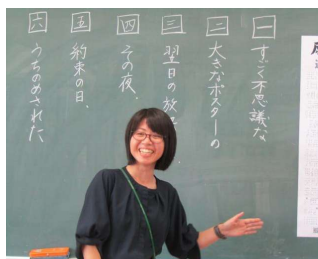 一 すごく不思議な
二 大きなポスターの
三 翌日の放
四 その夜、
五 約束の日、
六 うちのめされた